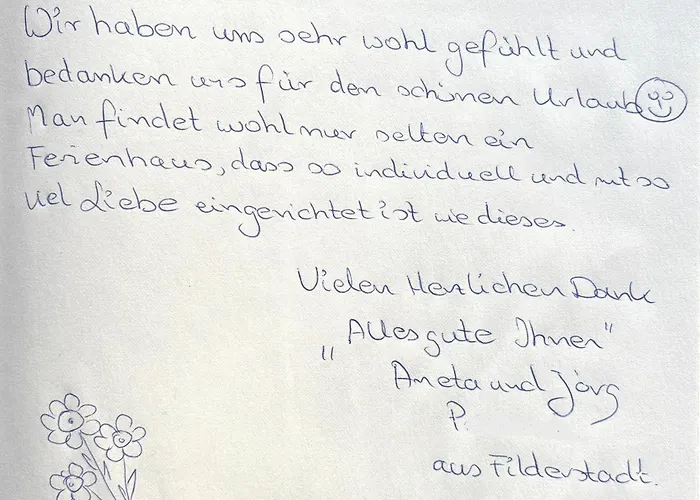 Wir haben uns sehr wohl gefühlt und
bedanken uns für den schönen Urlaub
Man findet wohl nur selten ein
Ferienhaus, dass so individuell und mit so
viel Liebe eingerichtet ist wie dieses.
Vielen Herzlichen Dank
„Alles gute Ihnen“
Aneta und Jörg
P.
aus Filderstadt.